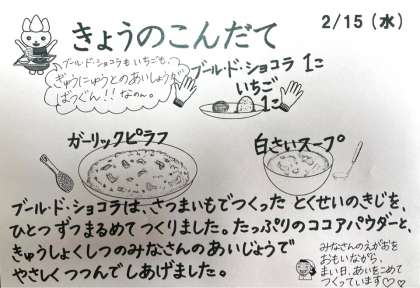 きょうのこんだて
2/15（水）
ブール・ド・ショコラもいちごも、
ぎゅうにゅうとのあいしょうが
ばつぐん!!なのん。
ブール・ド・ショコラ 1こ
いちご
1こ
ガーリックピラフ
白さいスープ
ブール・ド・ショコラは、さつまいもでつくった とくせいのきじを、
ひとつずつまるめて つくりました。たっぷりのココアパウダーと、
きゅうしょくしつのみなさんのあいじょうで
やさしくつつんでしあげました。
みなさんのえがおを
おもいながら、
まい日、あいをこめて
つくっています♡♡